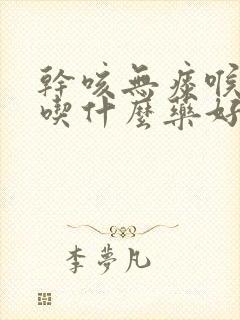 幹咳無痰喉
喫什麼藥好
李夢凡